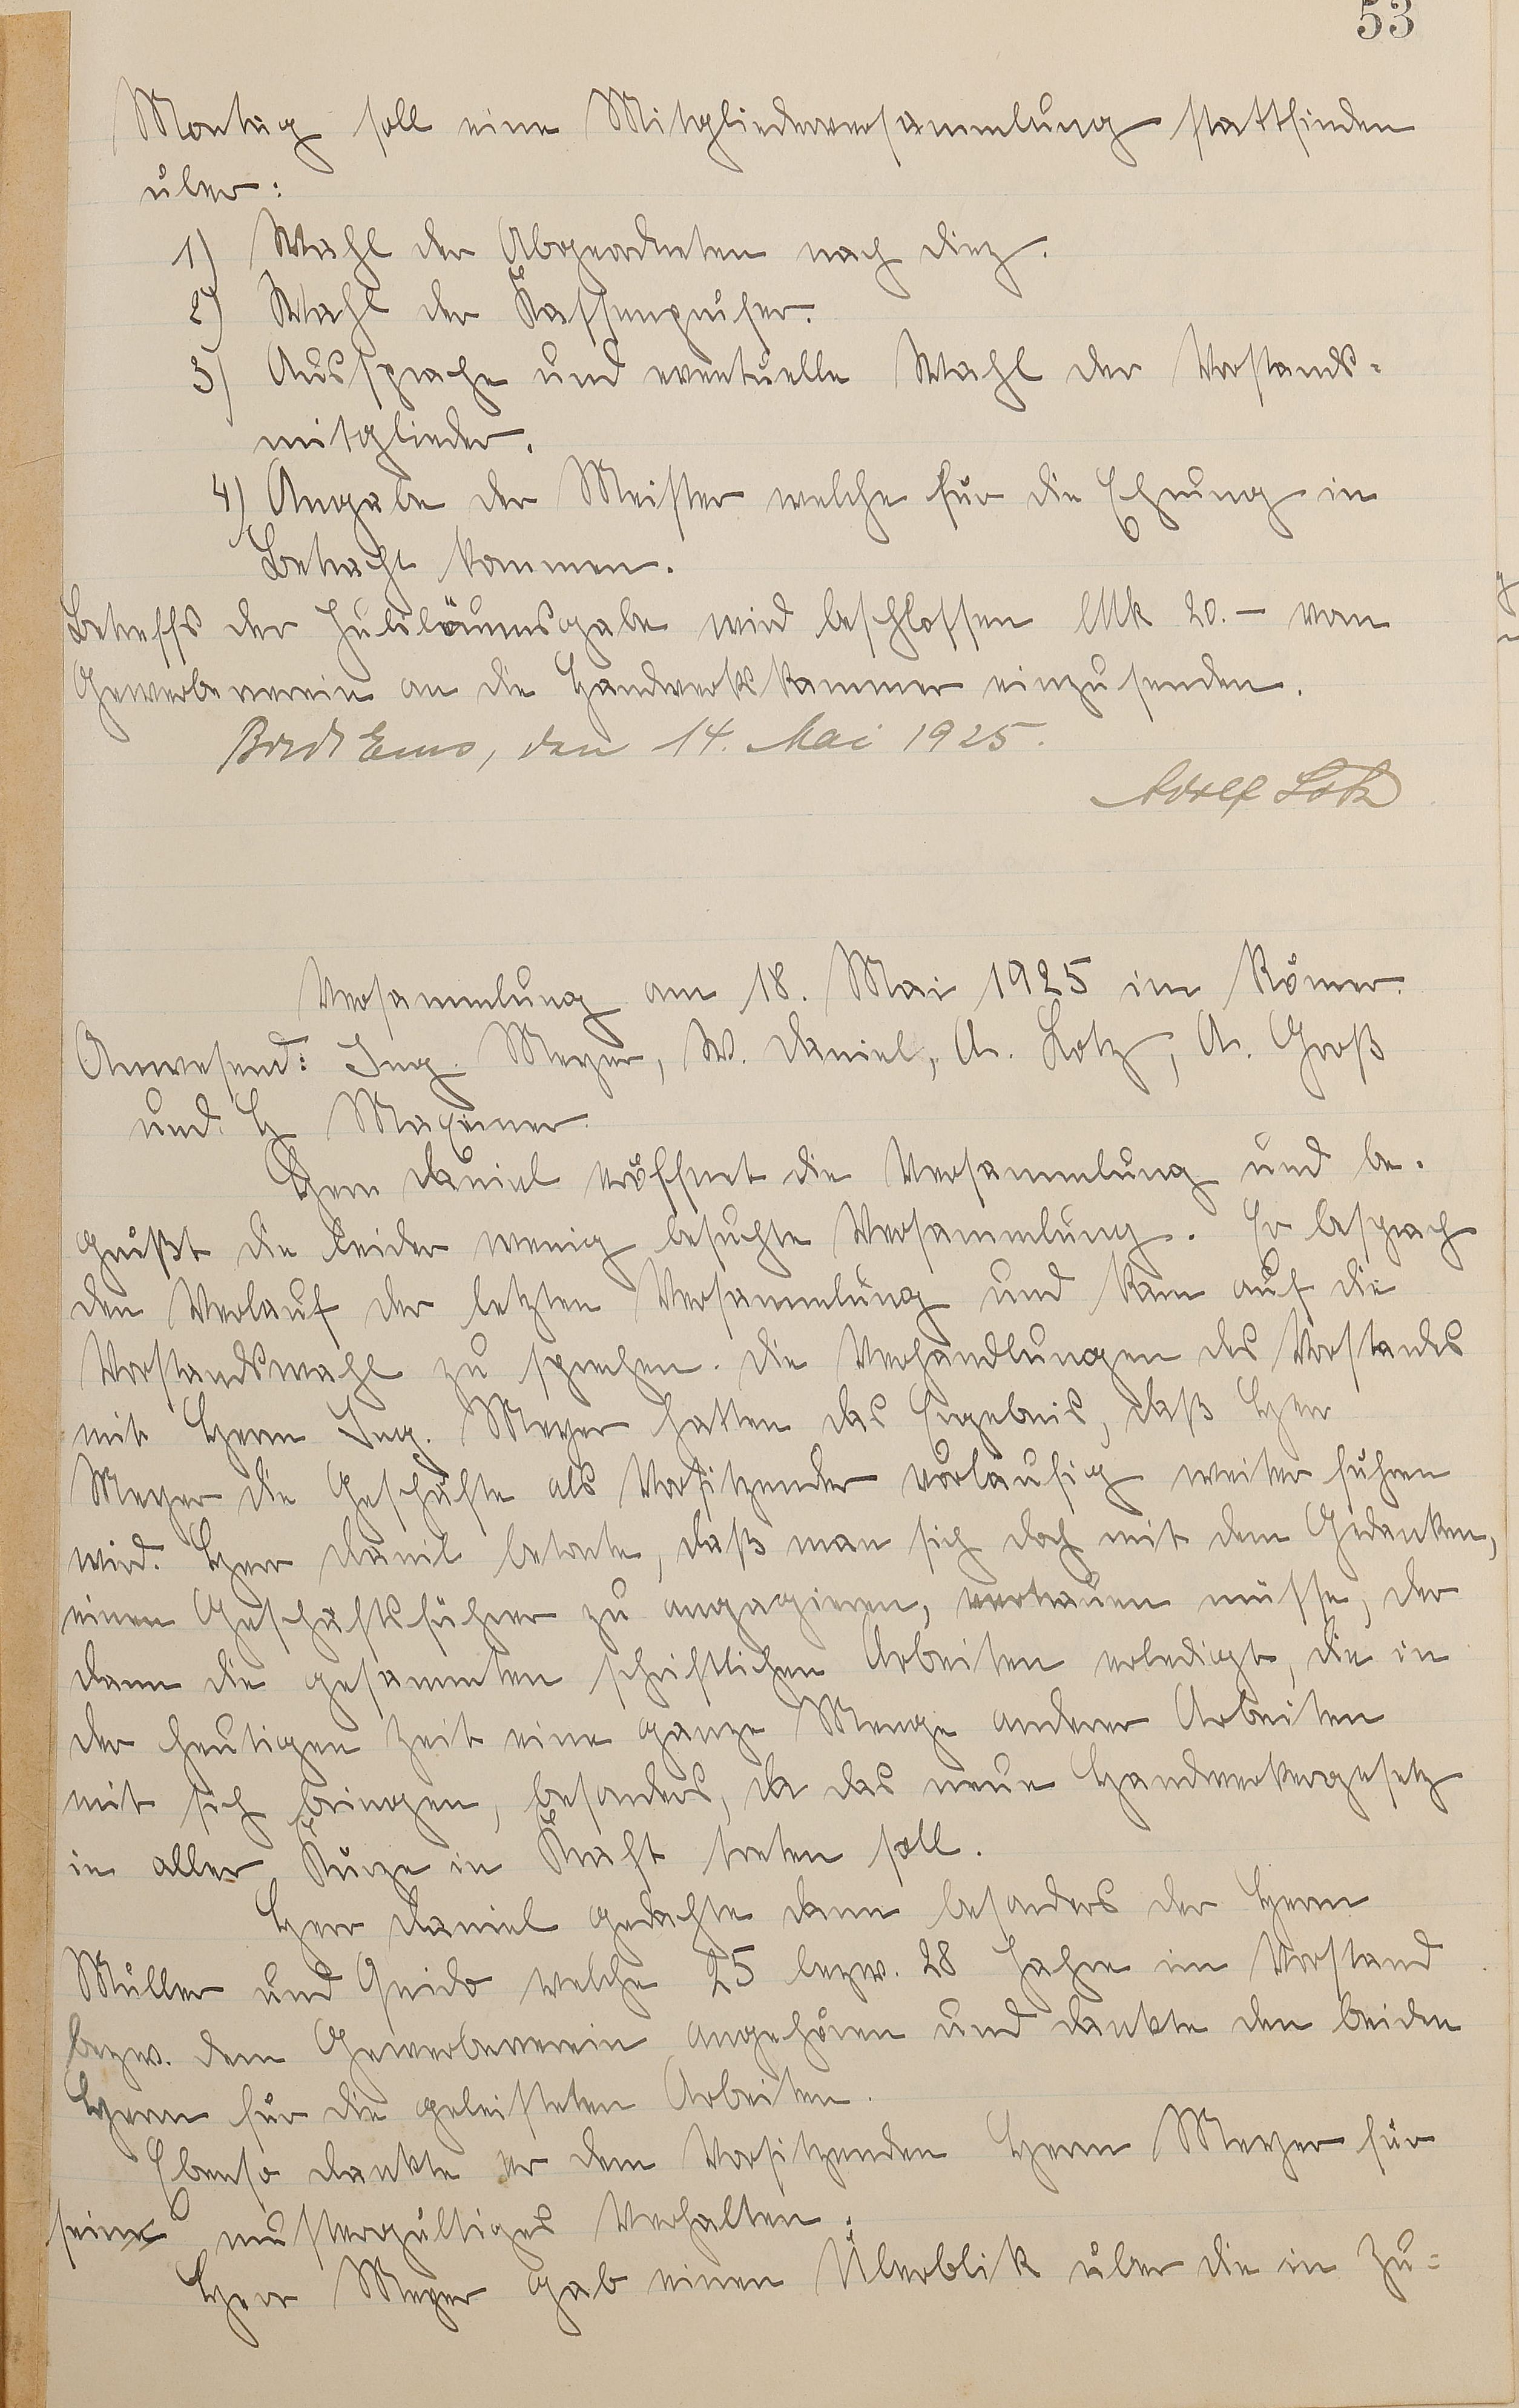 53
Montag soll eine Mitgliederversammlung stattfinden
über:
1) Wahl der Abgeordneten nach Diez.
2) Wahl der Kassenprüfer.
3) Aussprache und eventuelle Wahl der Vorstands-
mitglieder.
4) Angabe der Meister welche für die Ehrung in
Betracht kommen.
Betreffs der Jubiläumsgabe wird beschlossen Mk 20.- vom
Gewerbeverein an die Handwerkskammer einzusenden.
Bad Ems, den 14. Mai 1925.
Adolf Lotz
Versammlung am 18. Mai 1925 im Römer.
Anwesend: Ing. Meyer, W. Daniel, A. Lotz, A. Groß
und H. Maxeiner.
Herr Daniel eröffnet die Versammlung und be-
grüßt die leider wenig besuchte Versammlung. Er besprach
den Verlauf der letzten Versammlung und kam auf die
Vorstandswahl zu sprechen. Die Verhandlungen des Vorstandes
mit Herrn Ing. Meyer hatten das Ergebnis, daß Herr
Meyer die Geschäfte als Vorsitzender vorläufig weiter führen
wird. Herr Daniel betonte, daß man sich doch mit dem Gedanken,
einen Geschäftsführer zu angagieren, vertrauen müsse, der
dann die gesammten schriftlichen Arbeiten erledigt, die in
der heutigen Zeit eine ganze Menge anderer Arbeiten
mit sich bringen, besonders, da das neue Handwerkergesetz
in aller Kürze in Kraft treten soll.
Herr Daniel gedachte dann besonders der Herrn
Müller und Guido welche 25 bezw. 28 Jahre im Vorstand
bezw. dem Gewerbeverein angehören und dankte den beiden
Herrn für die geleisteten Arbeiten.
Ebenso dankte er dem Vorsitzenden Herrn Meyer für
sein mustergültiges Verhalten.
Herr Meyer gab einen Überblik über die in Zu-